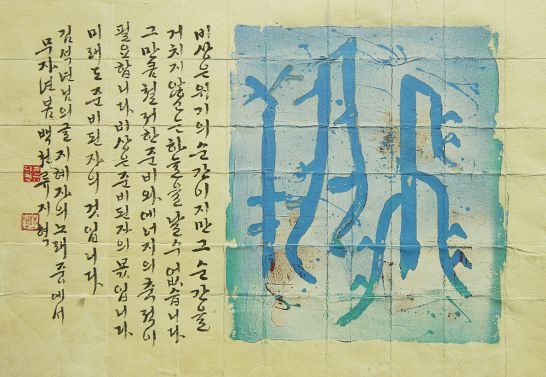 비상은 위기의 순간이지만 그 순간을
거치지 않고는 하늘을 날 수 없습니다.
그만큼 철저한 준비와, 에너지의 축적이
필요합니다. 비상은 준비된 자의 몫입니다.
미래도 준비된 자의 것입니다.
김석년님의 글 지혜자의 노래 중에서
무자년 봄 백천 류지혁